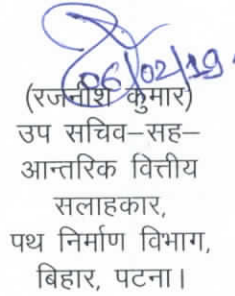 06/02/19
(रजनीश कुमार)
उप सचिव–सह–
आन्तरिक वित्तीय
सलाहकार,
पथ निर्माण विभाग,
बिहार, पटना।